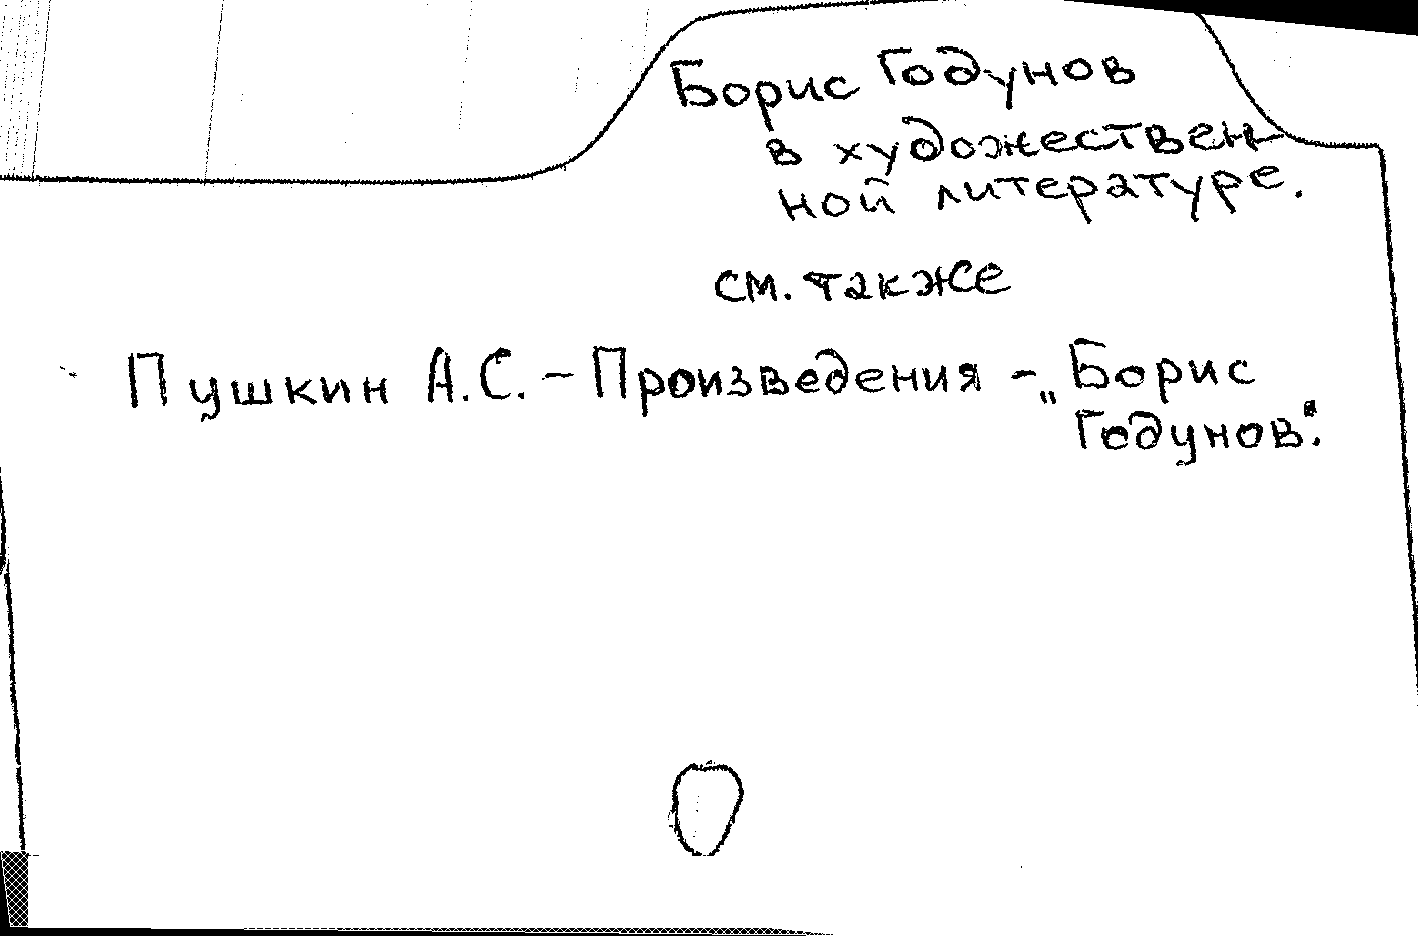 Борис Годунов
в художествен-
ной литературе.
см. также
Пушкин А.С. – Произведения – „Борис
Годунов".